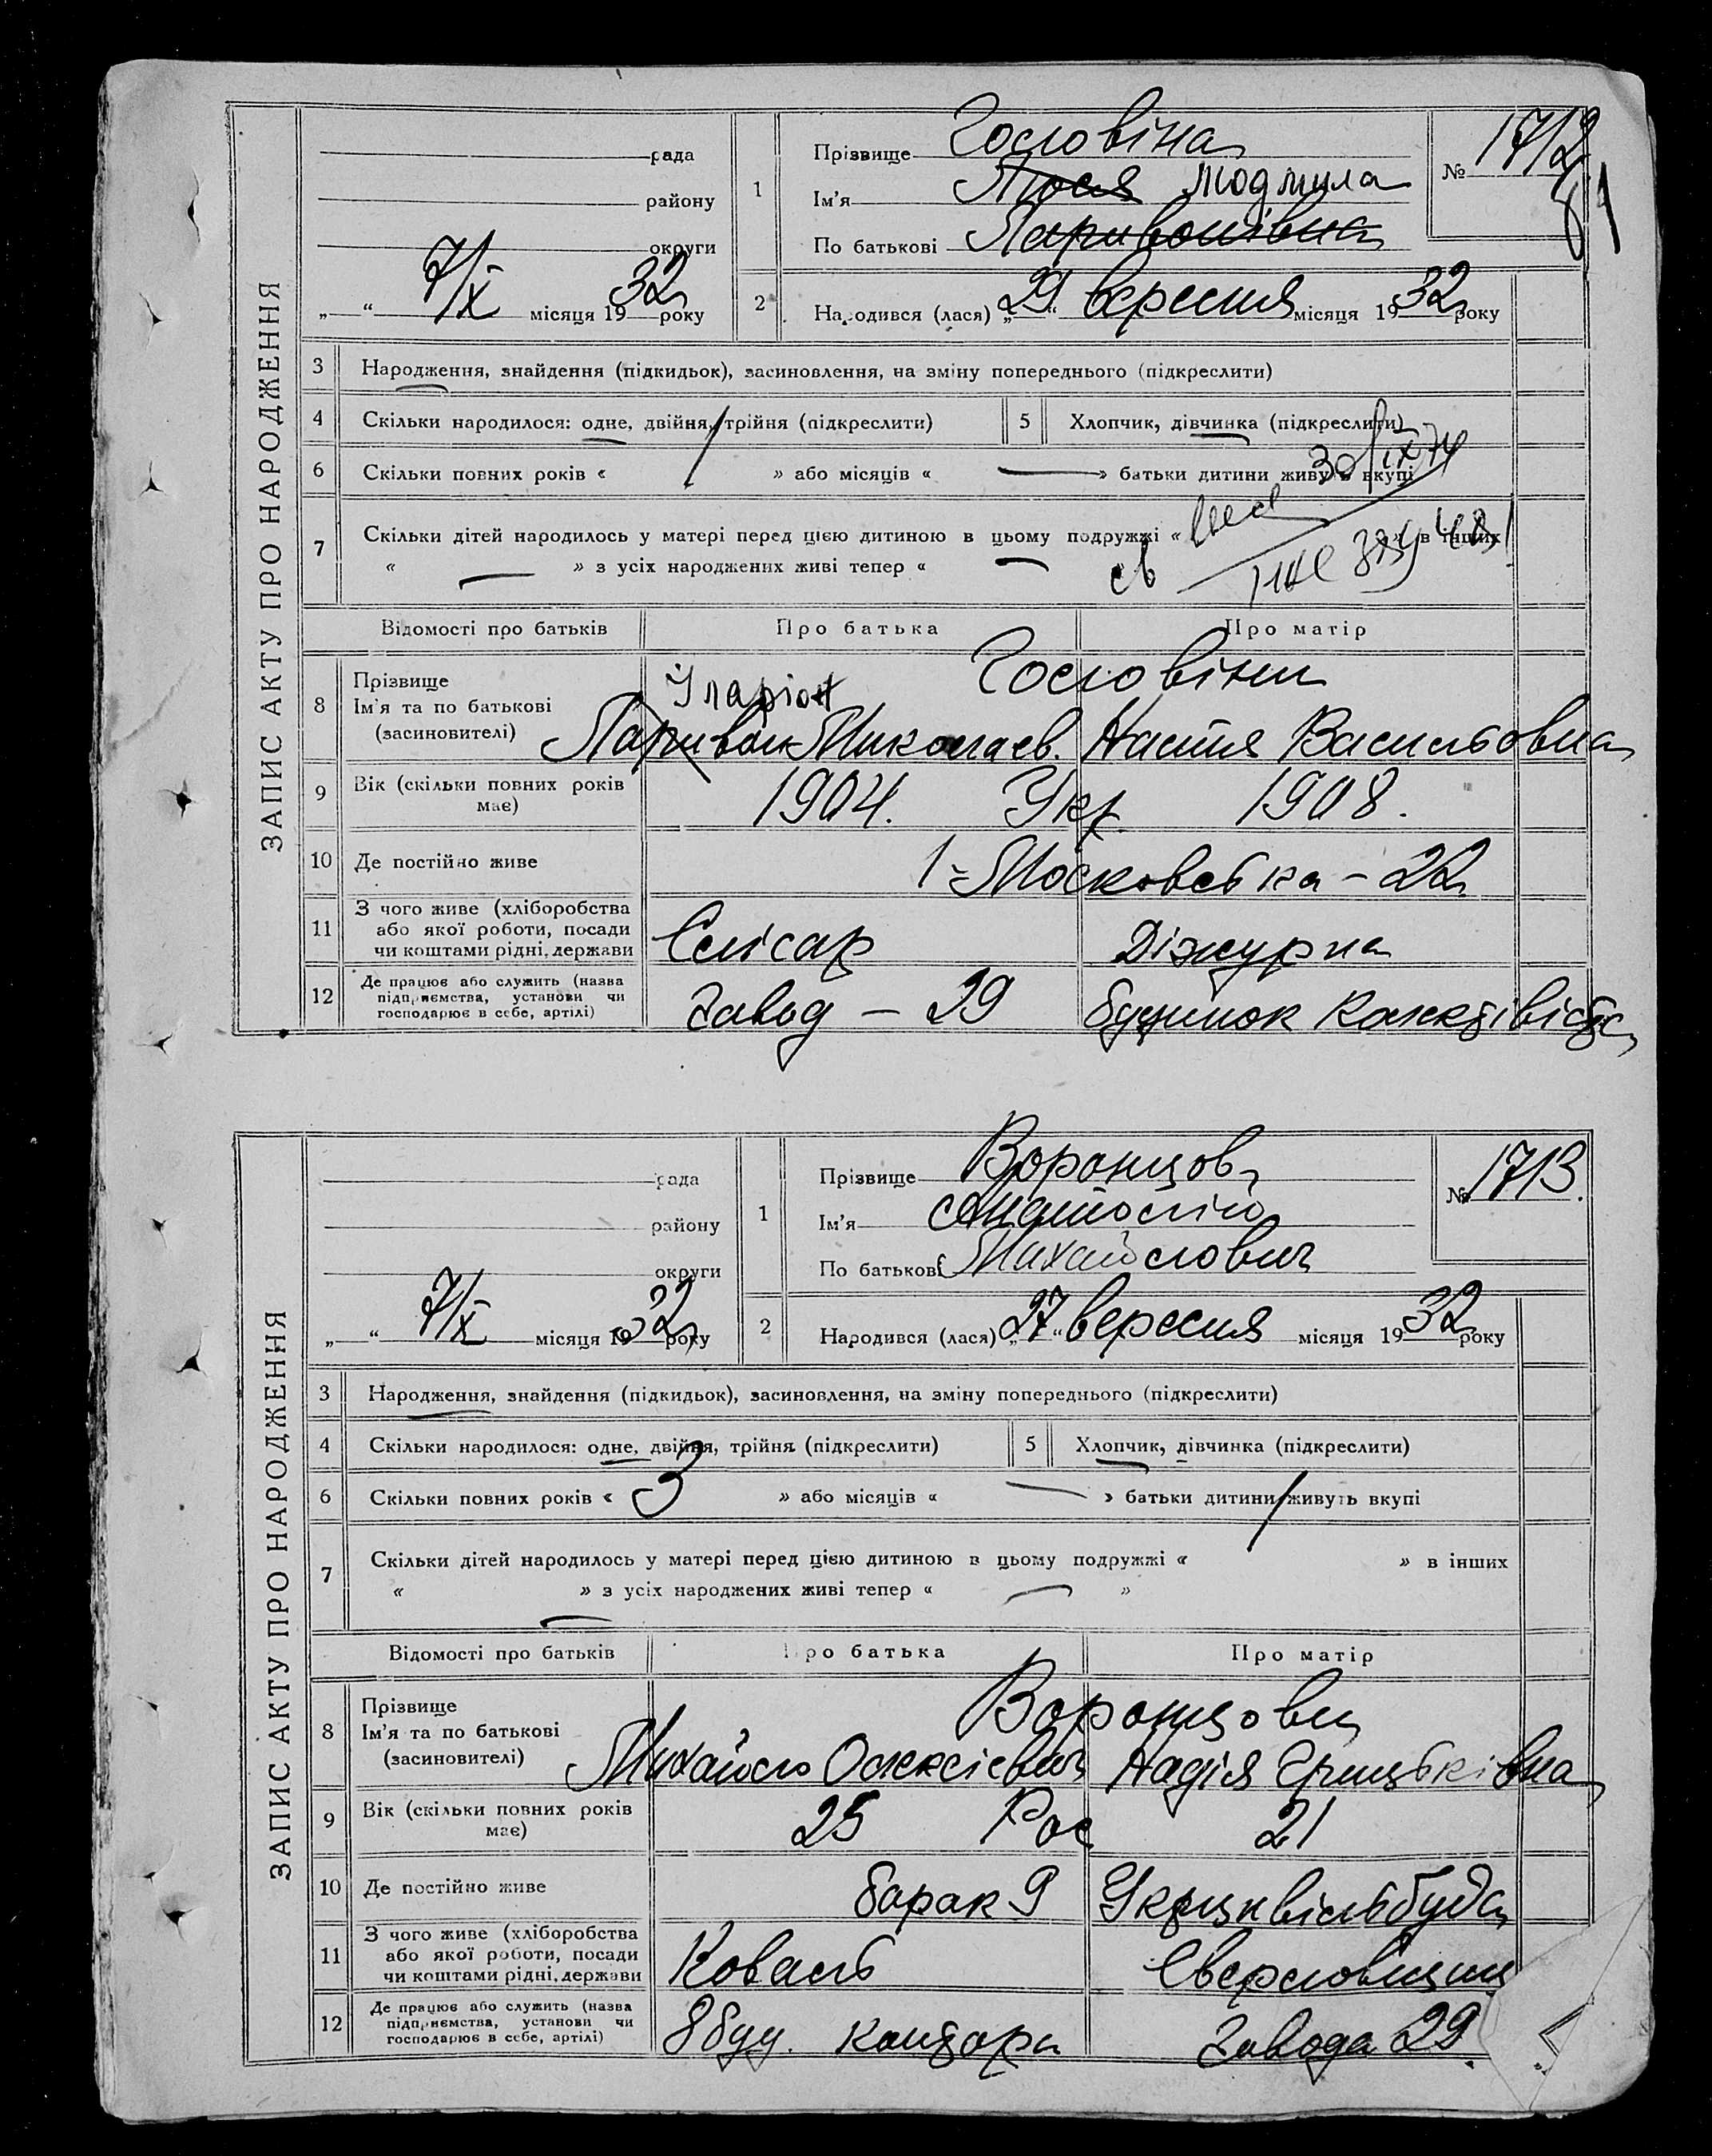 ЗАПИС АКТУ ПРО НАРОДЖЕННЯ
рада
району
округи
„ “ 7/X місяця 1932 року
1
Прізвище Головіна
Ім'я Люся Людмила
По батькові Ларивонівна
№ 1712
2
Народився (лася) „29“ вересня місяця 1932 року
3 Народження, знайдення (підкидьок), засиновлення, на зміну попереднього (підкреслити)
4 Скільки народилося: одне, двійня, трійня (підкреслити)
5 Хлопчик, дівчинка (підкреслити)
6 Скільки повних років « / » або місяців « — » батьки дитини живуть вкупі
30/IX 74
7 Скільки дітей народилось у матері перед цією дитиною в цьому подружжі « » в інших
« — » з усіх народжених живі тепер « —
Відомості про батьків Про батька Про матір
8 Прізвище
Ім'я та по батькові
(засиновителі)
Головіни
Іларіон
Ларивон Миколаєв. Настя Васильовна
9 Вік (скільки повних років має)
1904. Укр. 1908.
10 Де постійно живе
1=Московська – 22
11 З чого живе (хліборобства або якої роботи, посади чи коштами рідні, держави
Слісар Діжурна
12 Де працює або служить (назва підприємства, установи чи господарює в себе, артілі)
Завод – 29 будинок
ЗАПИС АКТУ ПРО НАРОДЖЕННЯ
рада
району
округи
„ “ 7/X місяця 1932 року
1
Прізвище Воронцов
Ім'я Анатолій
По батькові Михайлович
№ 1713.
2
Народився (лася) „27“ вересня місяця 1932 року
3 Народження, знайдення (підкидьок), засиновлення, на зміну попереднього (підкреслити)
4 Скільки народилося: одне, двійня, трійня (підкреслити)
5 Хлопчик, дівчинка (підкреслити)
6 Скільки повних років « 3 » або місяців « — » батьки дитини живуть вкупі
7 Скільки дітей народилось у матері перед цією дитиною в цьому подружжі « / » в інших
« — » з усіх народжених живі тепер « — »
Відомості про батьків Про батька Про матір
8 Прізвище
Ім'я та по батькові
(засиновителі)
Воронцови
Михайло Олексієвич Надія Грицьківна
9 Вік (скільки повних років має)
25 Рос 21
10 Де постійно живе
барак 9
11 З чого живе (хліборобства або якої роботи, посади чи коштами рідні, держави
Коваль Сверловщиц
12 Де працює або служить (назва підприємства, установи чи господарює в себе, артілі)
8 буд. контора Завода 29.